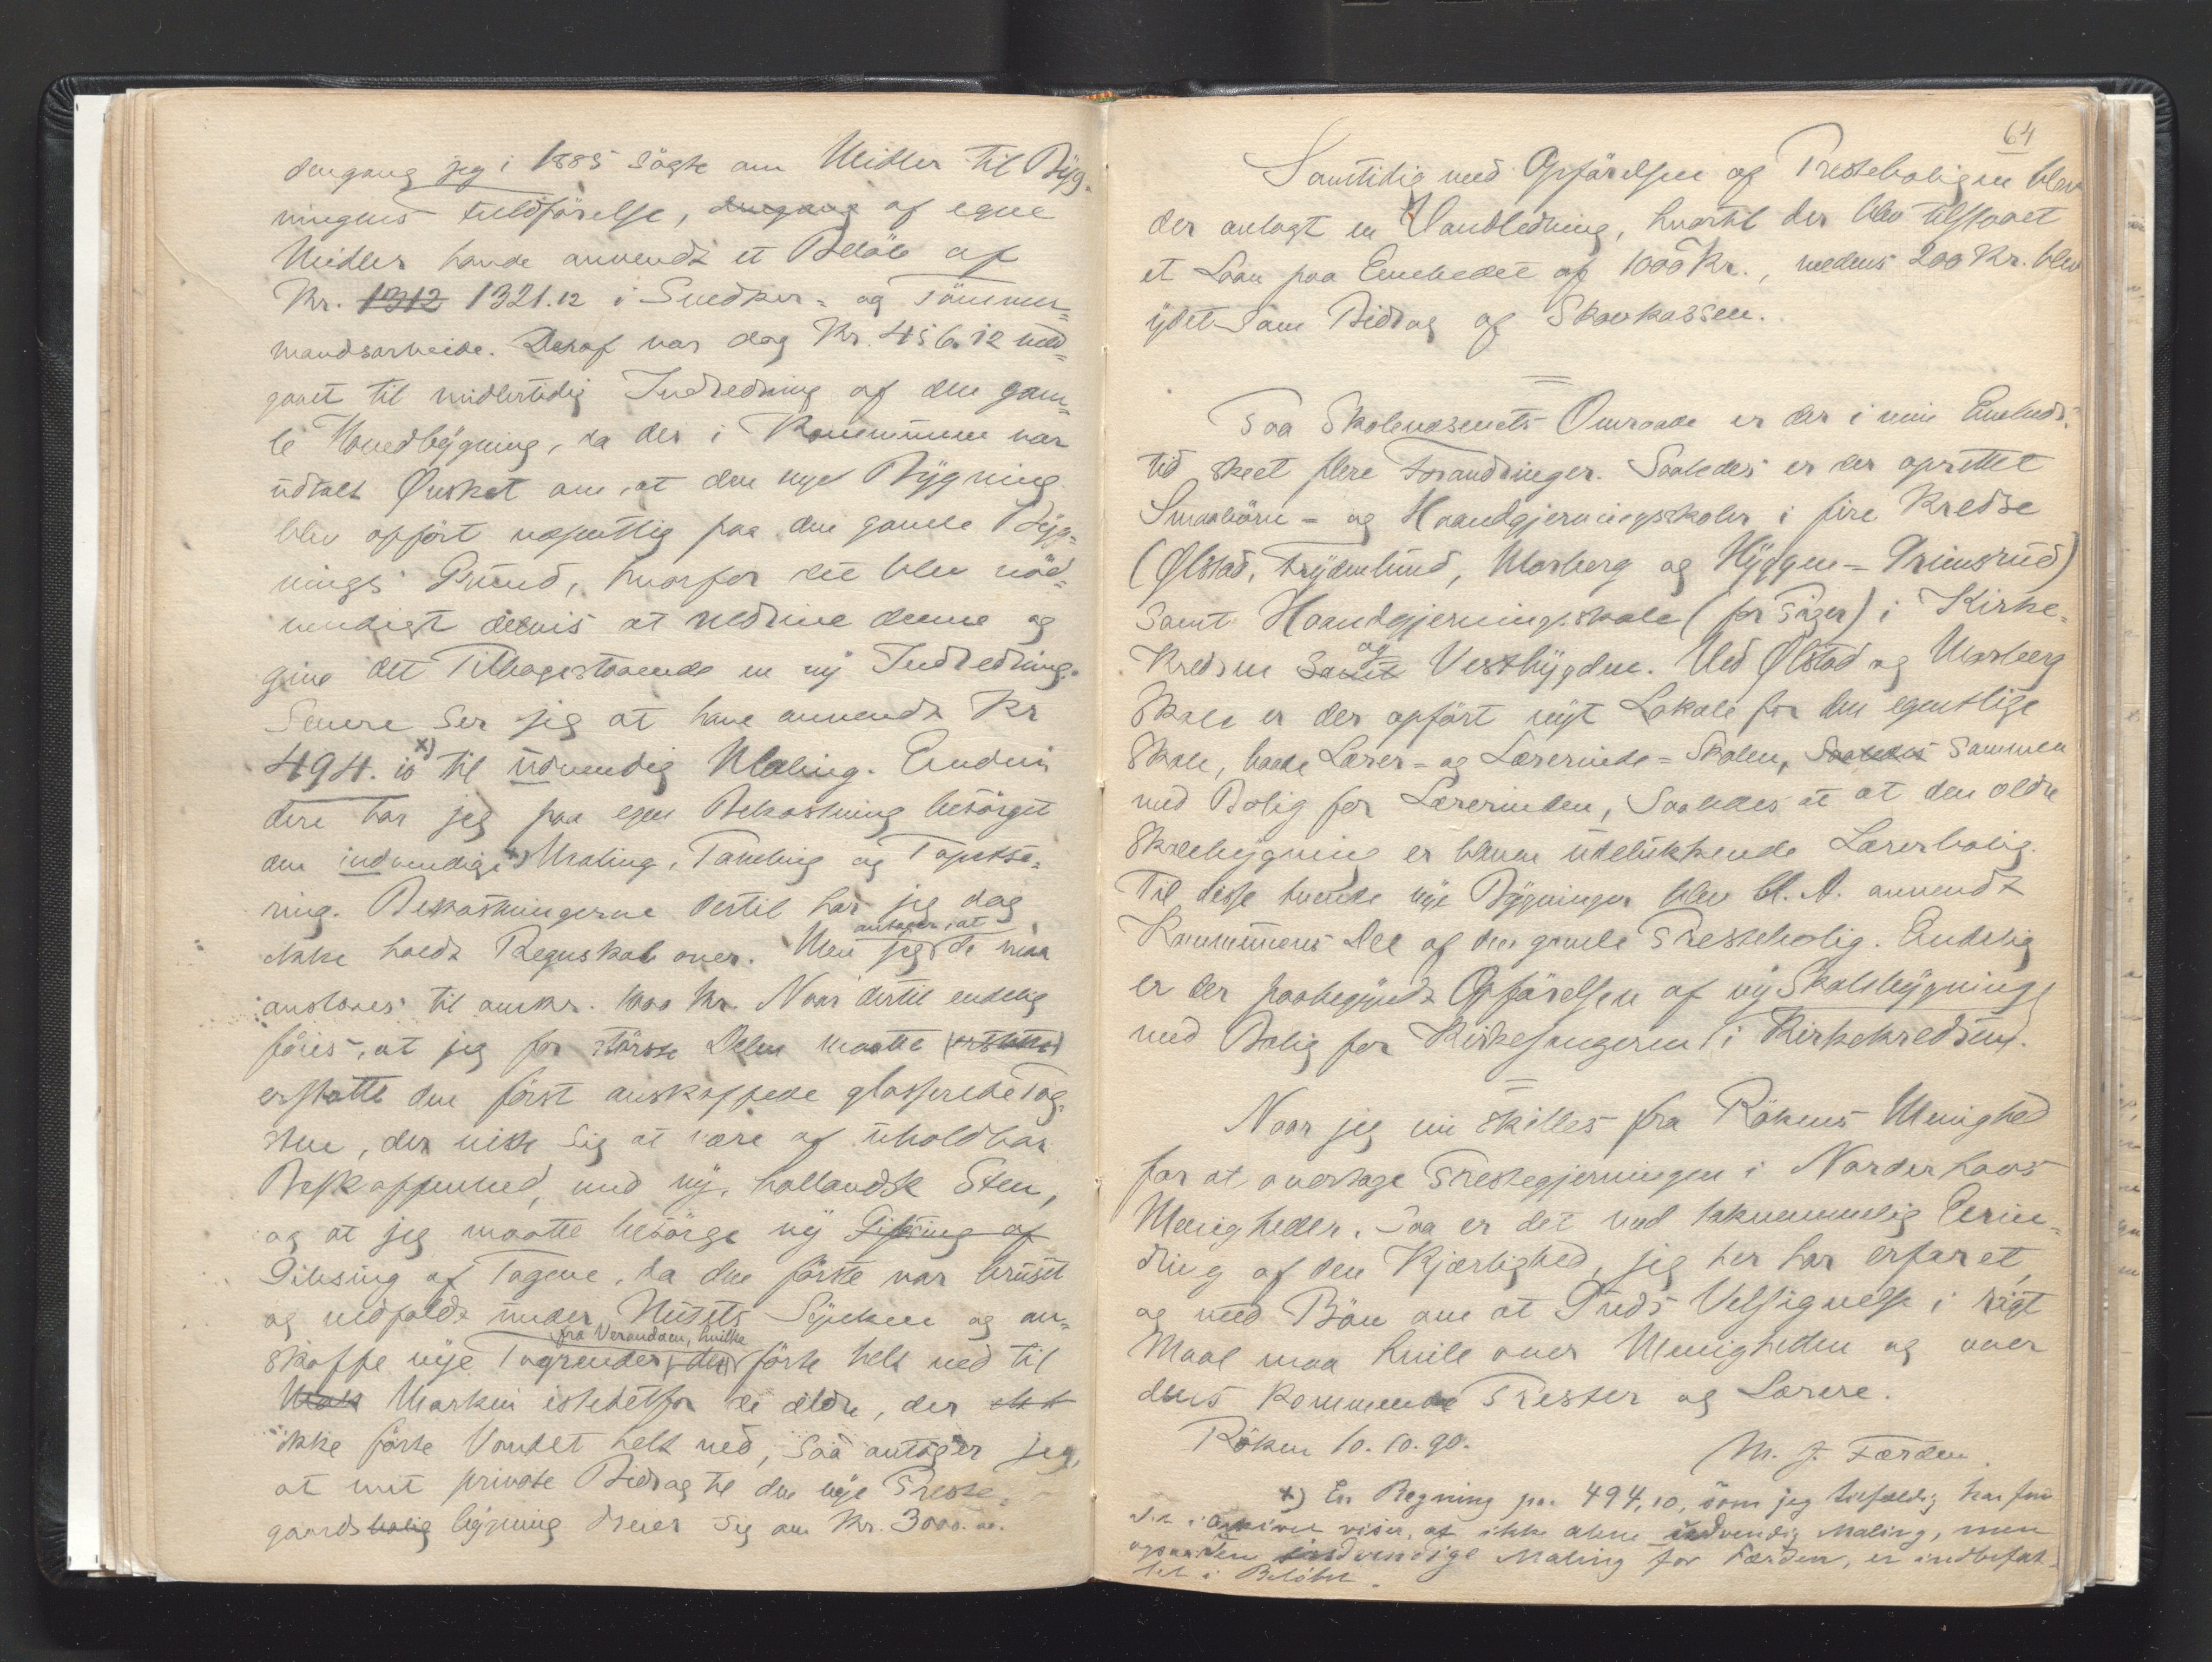 dengang jeg i 1885 søgte om Midler til Byg-
ningens Fuldførelse, dengang af egne
Midler havde anvendt et Beløb af
Kr. 1312 1321.12 i Snedker- og Tømmer-
mandsarbeide. Deraf var dog Kr. 456.12 med-
gaaet til midlertidig Indredning af den gam-
le Hovedbygning, da der i Kommunen var
udtalt Ønsket om, at den nye Bygning
blev opført væsentlig paa den gamle Byg-
nings Grund, hvorfor det blev nød-
vendigt delvis at nedrive denne og
give det Tilbagestaaende en ny Indredning.
Senere ser jeg at have anvendt Kr
494.10 x) til udvendig Maling. Endvi-
dere har jeg paa egen Bekostning besørget
den indvendige Maling, Paneling og Tapetse-
ring. Bekostningerne dertil har jeg dog
ikke holdt Regnskab over. Men jeg antager, at de maa
ansloaes til omkr. 1000 Kr. Naar dertil endelig
føies, at jeg for største Delen maatte (erstatte)
erstatte den først anskaffede glasserede Tag-
sten, der viste sig at være af uholdbar
Beskaffenhed, med ny, hollandsk Sten,
og at jeg maatte besørge ny Gibsing af
Gibsing af Tagene, da den første var brustet
og nedfaldt under Husets Synken og an-
skaffe nye Tagrender, der fra Verandaen, hvilke førte helt ned til
Mark Marken istedetfor de ældre, der
ikke førte Vandet helt ned, saa antager jeg,
at mit private Bidrag til den nye Preste-
gaardsbolig bygning dreier sig om Kr. 3000.00.
64
Samtidig med Opførelsen af Presteboligen blev
der anlagt en Vandledning, hvortil der blev tilstaaet
et Laan paa Embedet af 1000 Kr., medens 200 Kr. blev
ydet som Bidrag af Skovkassen.
=
Paa Skolevæsenets Omraade er der i min Embeds-
tid skeet flere Forandringer. Saaledes er der oprettet
Smaabørn- og Haandgjerningsskoler i fire Kredse
(Ølstad, Frydenlund, Morberg og Hyggen-Grimsrud)
samt Haandgjerningsskole (for Piger) i Kirke-
kredsen samt og Vestbygden. Ved Ølstad og Morberg
Skole er der opført nyt Lokale for den egentlige
Skole, baade Lærer- og Lærerinde-Skolen, Saaledes sammen
med Bolig for Lærerinden, saaledes at at den ældre
Skolebygning er bleven udelukkende Lærerbolig.
Til disse tvende nye Bygninger blev bl. A. anvendt
Kommunens Del af den gamle Prestebolig. Endelig
er der paabegyndt Opførelsen af ny Skolebygning
med Bolig for Kirkesangeren i Kirkekredsen.
=
Naar jeg nu skilles fra Røkens Menighed
for at overtage Prestegjerningen i Norderhovs
Menigheder, saa er det med taknemmelig Erin-
dring af den Kjærlighed, jeg her har erfaret,
og med Bøn om at Guds Velsignelse i rigt
Maal maa hvile over Menigheden og over
dens kommende Prester og Lærere.
Røken 10.10.90.
M. J. Færden.
x) En Regning pr. 494,10, som jeg tilfældig har fun-
det i arkivet viser, at ikke alene udvendig Maling, men
ogsaa den indvendige Maling for Færden, er indbefat-
tet i Beløbet.